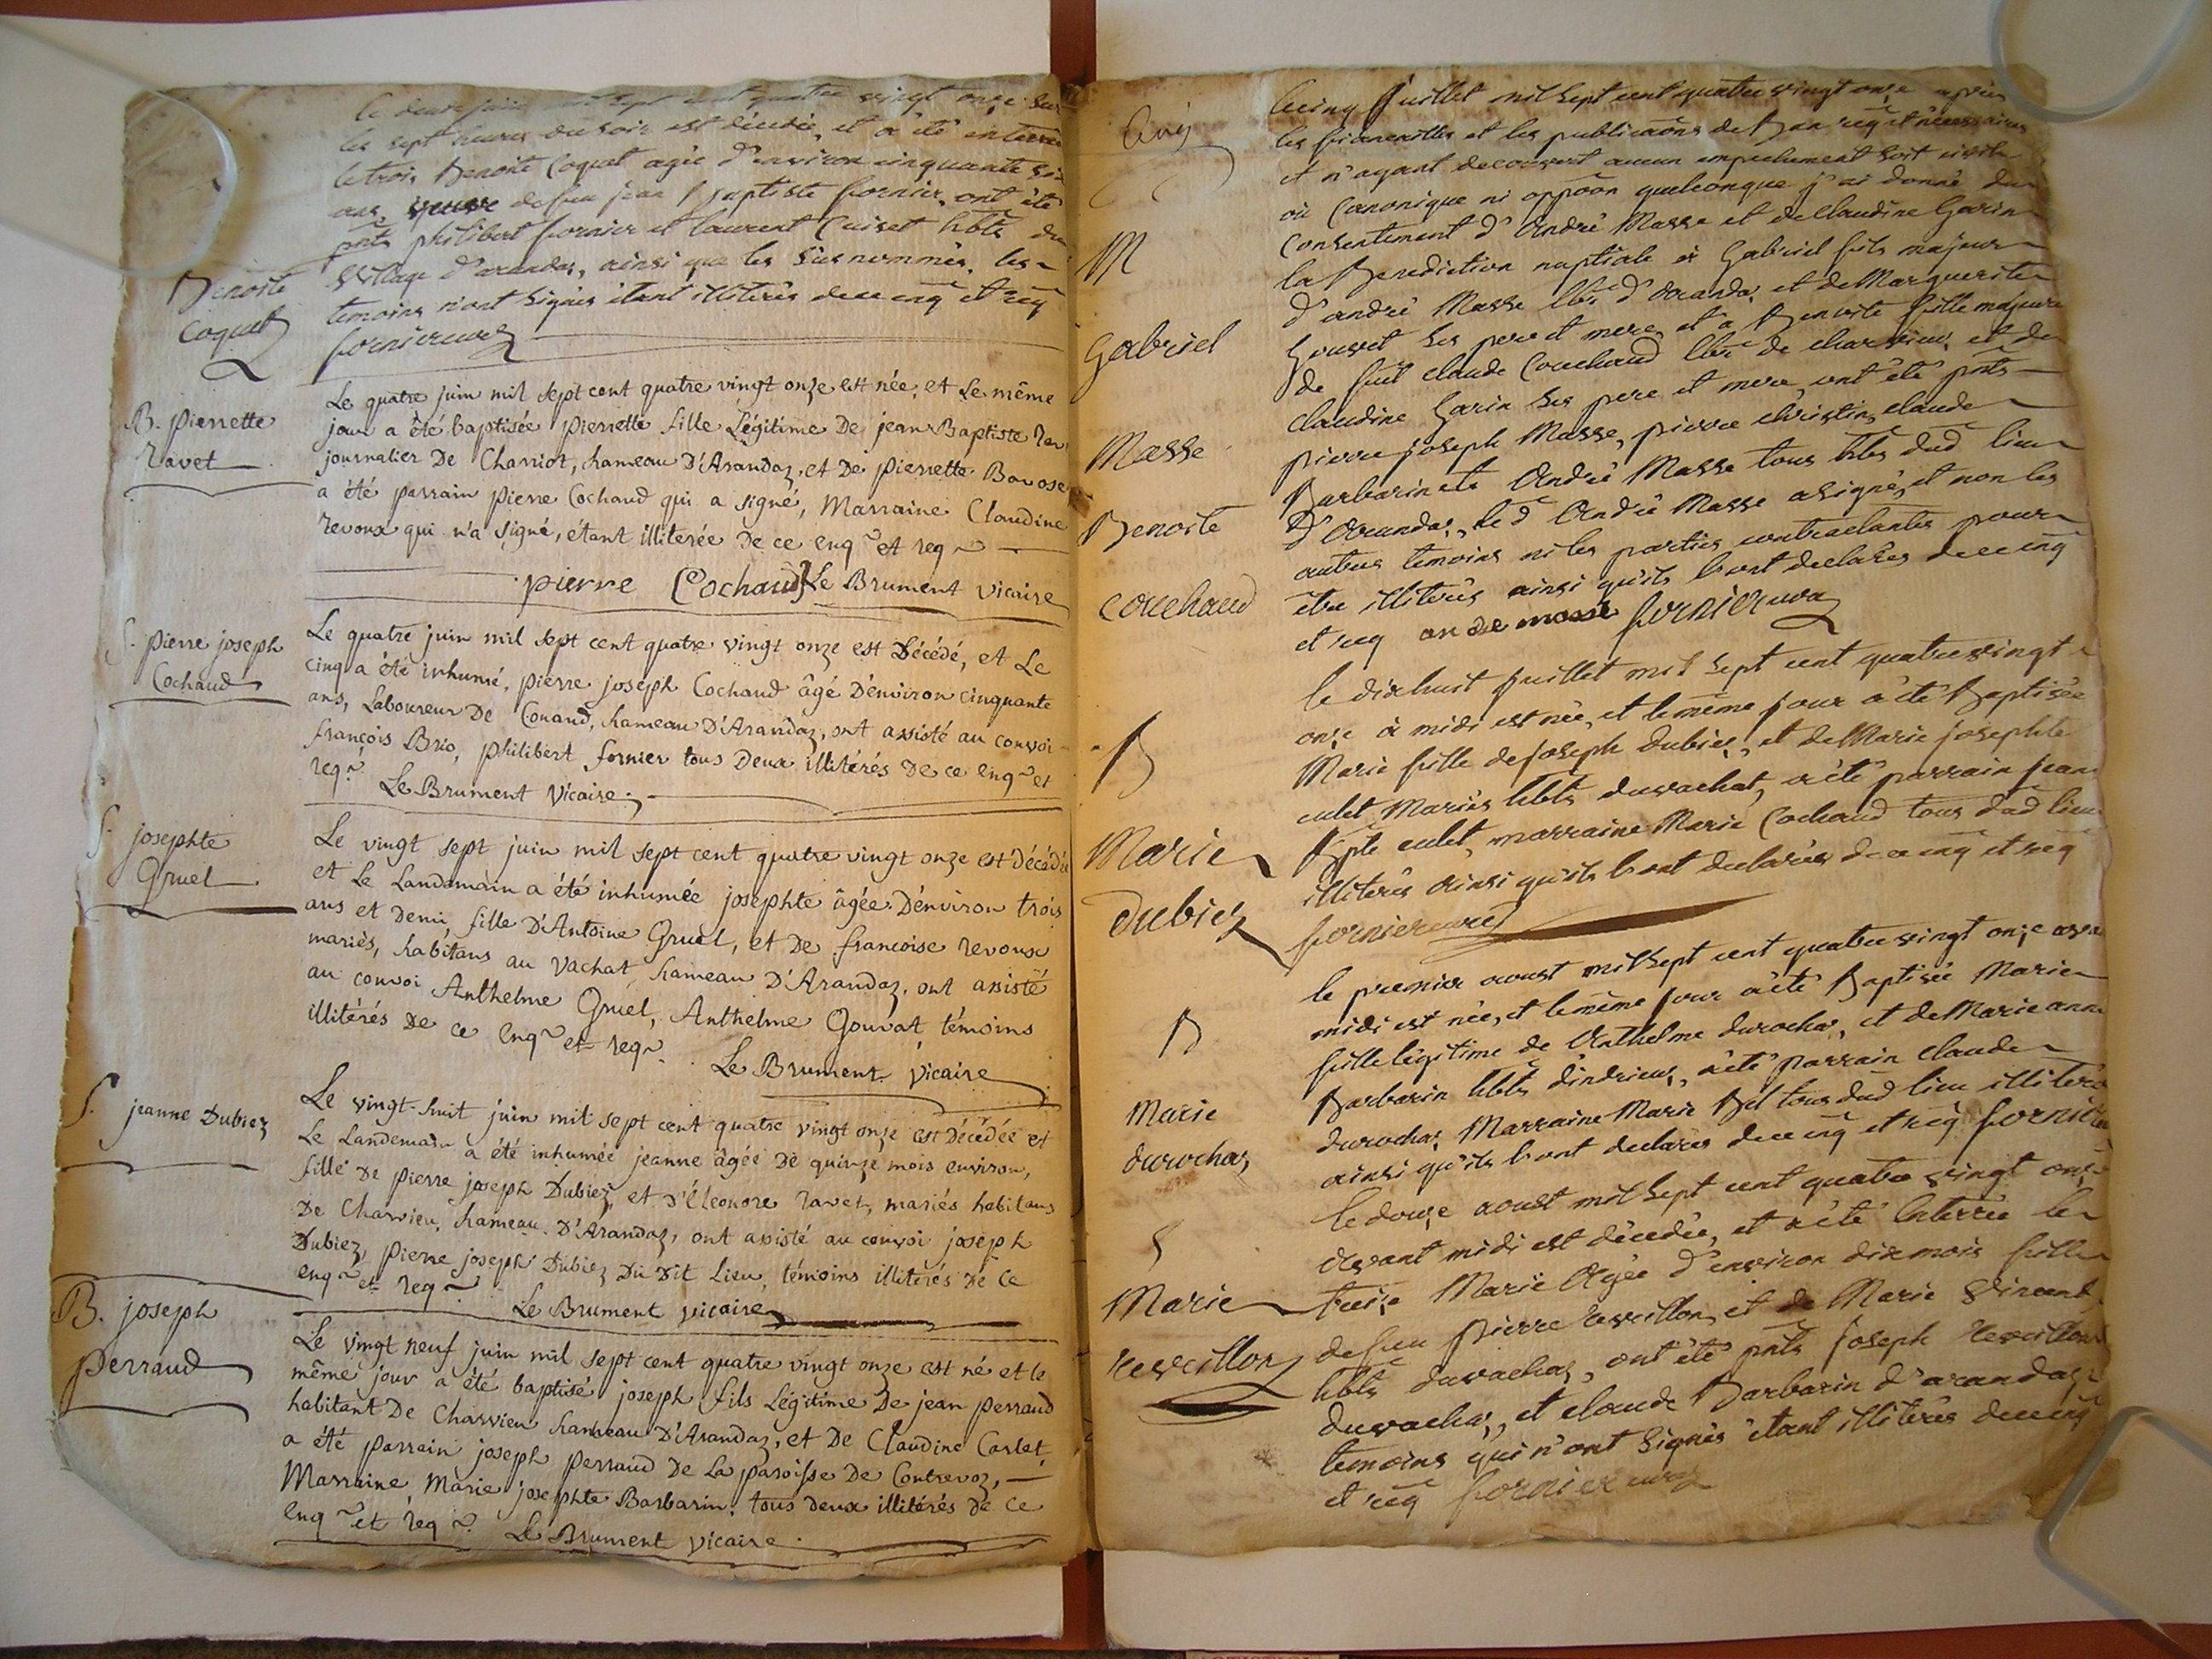 Le deux juin mil sept cent quatre vingt onze sur
les sept heures du soir est décédée, et a été enterrée
le trois Benoite Coquet agée d'environ cinquante six
ans veuve de feu jean Baptiste fornier, ont été
pnts philibert fornier et laurent Cuiset hbts du
Benoite
village d'arandas, ainsi que les susnommés, les
Coquet
temoins n'ont signés étant illiterés de ce enq et req
fornier curé
B. pierrette
Ravet
Le quatre juin mil sept cent quatre vingt onze est née, et Le même
jour a été baptisée pierrette fille Légitime De jean Baptiste Rav
journalier De Charriot, hameau D'Arandaz, et De pierrette Bovose
a été parrain pierre Cochaud qui a signé, Marraine Claudine
revoux qui n'a signé, étant illiterée De ce enq et req
pierre Cochaud Le Brument vicaire
S. pierre joseph
Cochaud
Le quatre juin mil sept cent quatre vingt onze est Décédé, et Le
cinq a été inhumé, pierre joseph Cochaud âgé D'environ cinquante
ans, Laboureur De Couand, hameau D'Arandaz, ont assisté au convoi
françois Brio, philibert fornier tous Deux illitérés De ce enq et
req Le Brument Vicaire
S. josephte
Gruel
Le vingt sept juin mil sept cent quatre vingt onze est décédée
et Le Landemain a été inhumée josephte âgée D'environ trois
ans et demi, fille D'Antoine Gruel, et De francoise revoux
mariés, habitans au vachat, hameau D'Arandaz, ont assisté
au convoi Anthelme Gruel, Anthelme Gouvat témoins
illitérés De ce enq et req
Le Brument vicaire
S. jeanne Dubiez
Le vingt-huit juin mil sept cent quatre vingt onze est Décédée et
Le Landemain a été inhumée jeanne âgée De quinze mois environ,
fille De pierre joseph Dubiez, et D'éleonore ravet, mariés habitans
De Charvieu, hameau D'Arandaz, ont assisté au convoi joseph
Dubiez, pierre joseph Dubiez Du Dit Lieu, témoins illitérés De ce
enq et req
Le Brument vicaire
B. joseph
perraud
Le vingt neuf juin mil sept cent quatre vingt onze est né et le
même jour a été baptisé joseph fils Légitime De jean perraud
habitant De Charvieu hameau D'Arandaz, et De Claudine Carlet
a été parrain joseph perraud De La paroisse De Contrevoz,
Marraine, Marie josephte Barbarin, tous deux illitérés De ce
enq et req Le Brument vicaire
le cinq Juillet mil sept cent quatre vingt onze après
les fiancailles et les publicaõns de Ban req et nécessaires
et n'ayant decouvert aucun empechement soit civil
où Canonique ni oppõon quelconque j'ai donné du
M
Consentement d'André Masse et de Claudine Garin
la Benediction nuptiale à Gabriel fils majeur
d'andré Masse lbr d'Arandas, et de Marguerite
Gabriel
Gouvet ses pere et mere, et a Benoite fille majeure
de feut Claude Couchaud lbr de charvieu, et de
Claudine Garin ses pere et mere, ont été pnts
Masse
pierre joseph Masse, pierre christin, claude
Barbarin et André Masse tous hbts dud lieu
d'Arandas, led André Masse a signé, et non les
Benoite
autres temoins ni les parties contractantes pour
Couchaud
être illiterés ainsi qu'ils l'ont declarés de ce enq
et req andre masse fornier curé
le dixhuit Juillet mil sept cent quatrevingt
onze à midi est née, et le même jour a été Baptisée
B
Marie fille de Joseph Dubiez, et de Marie josephte
culet Mariés hbts du vachat, a été parrain jean
Marie
Bpte culet, marraine Marie Cochaud tous dud lieu
Dubiez
illiterés ainsi qu'ils l'ont declarés de ce enq et req
fornier curé
le premier aoust mil sept cent quatre vingt onze avant
midi est née, et le même jour a été Baptisée Marie
B
fille légitime de Anthelme durochas, et de Marie anne
Barbarin hbts d'indrieux, a été parrain Claude
Marie
durochas Marraine Marie Bel tous dud lieu illiterés
durochaz
ainsi qu'ils l'ont declarés de ce enq et req fornier
le douze aoust mil sept cent quatre vingt onze
S
avant midi est décedée, et a été Enterrée le
Marie
treize Marie Agée d'environ dix mois fille
Reveillon
de feu Pierre reveillon, et de Marie Vincent
hbts du vachaz, ont été pnts Joseph Reveillon
du vachaz, et claude Barbarin d'arandaz
temoins qui n'ont signés étant illiterés de ce enq
et req fornier curé